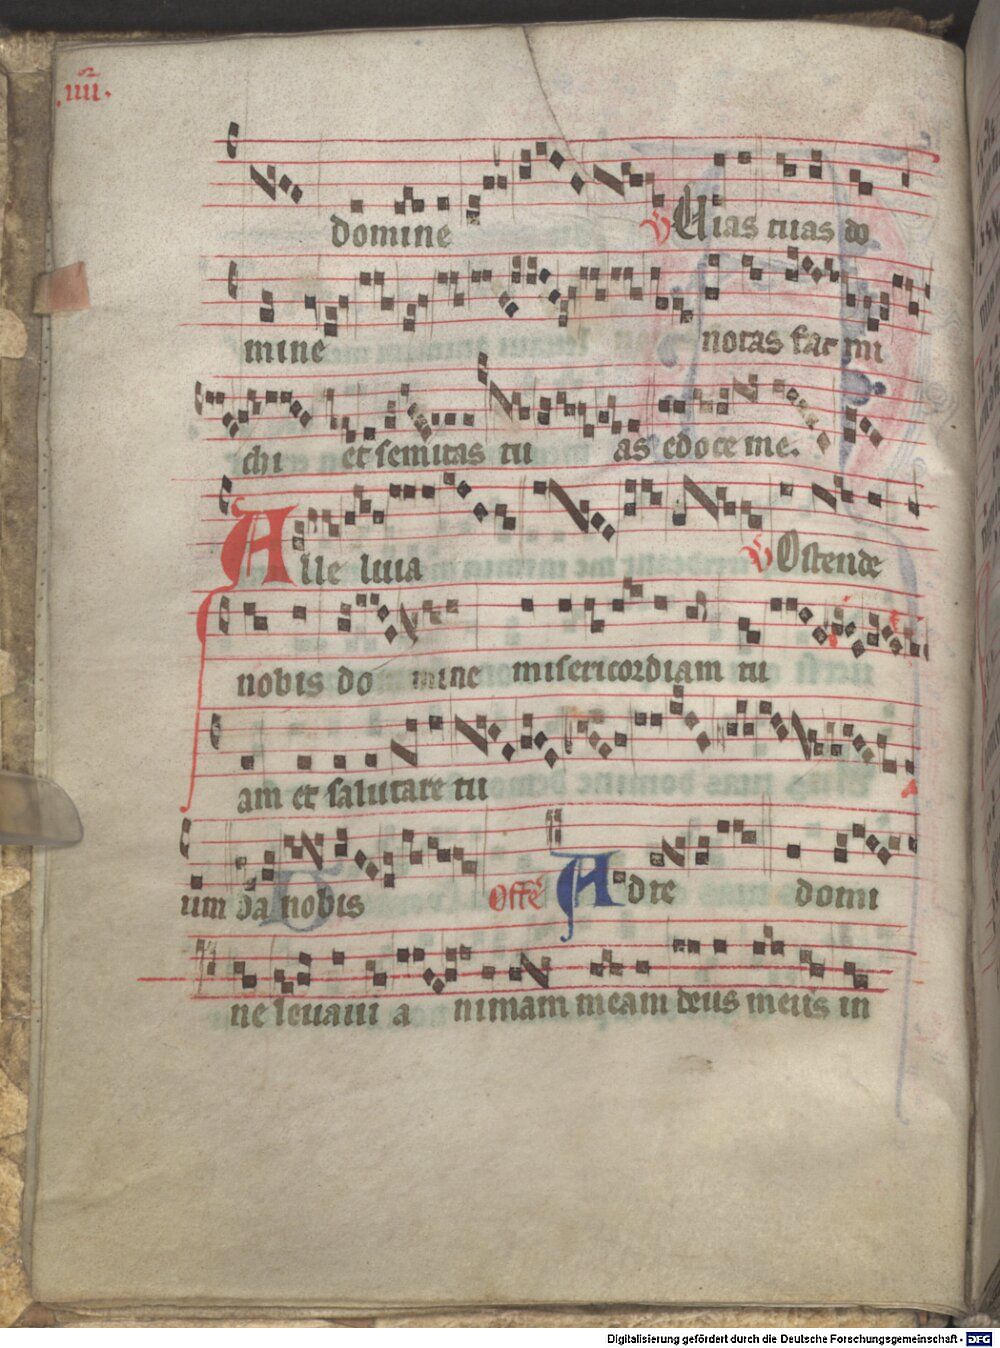 .iiii.
domine V Uias tuas do
mine notas fac mi
chi et semitas tu as edoce me.
Alle luia V Ostende
nobis do mine misericordiam tu
am et salutare tu
um da nobis Offe Ad te domi
ne leuaui a nimam meam deus meus in
Digitalisierung gefördert durch die Deutsche Forschungsgemeinschaft - DFG